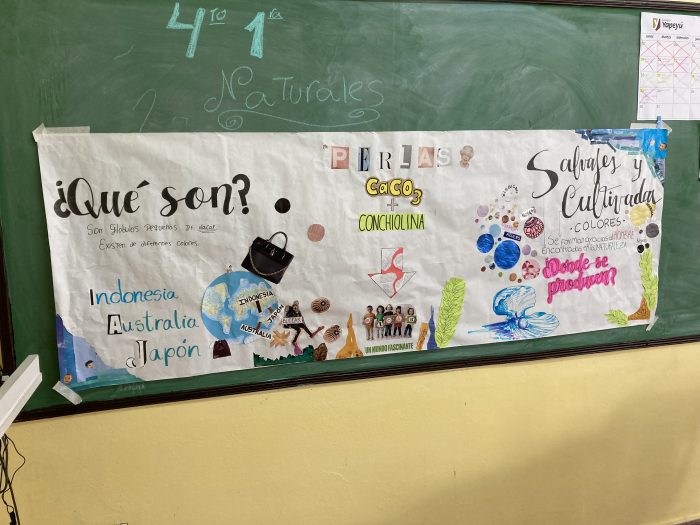 4TO 1ra
Naturales
Yapeyú
PERLAS
CaCO3
+
CONCHIOLINA
UN MUNDO FASCINANTE
¿Qué son?
Son glóbulos pequeños de nacar
Existen de diferentes colores.
Indonesia
Australia
Japón
INDONESIA
AUSTRALIA
JAPÓN
Salvajes y
Cultivadas
COLORES
Se forman gracias al
Encontradas en la NATURALEZA
¿Donde se
producen?